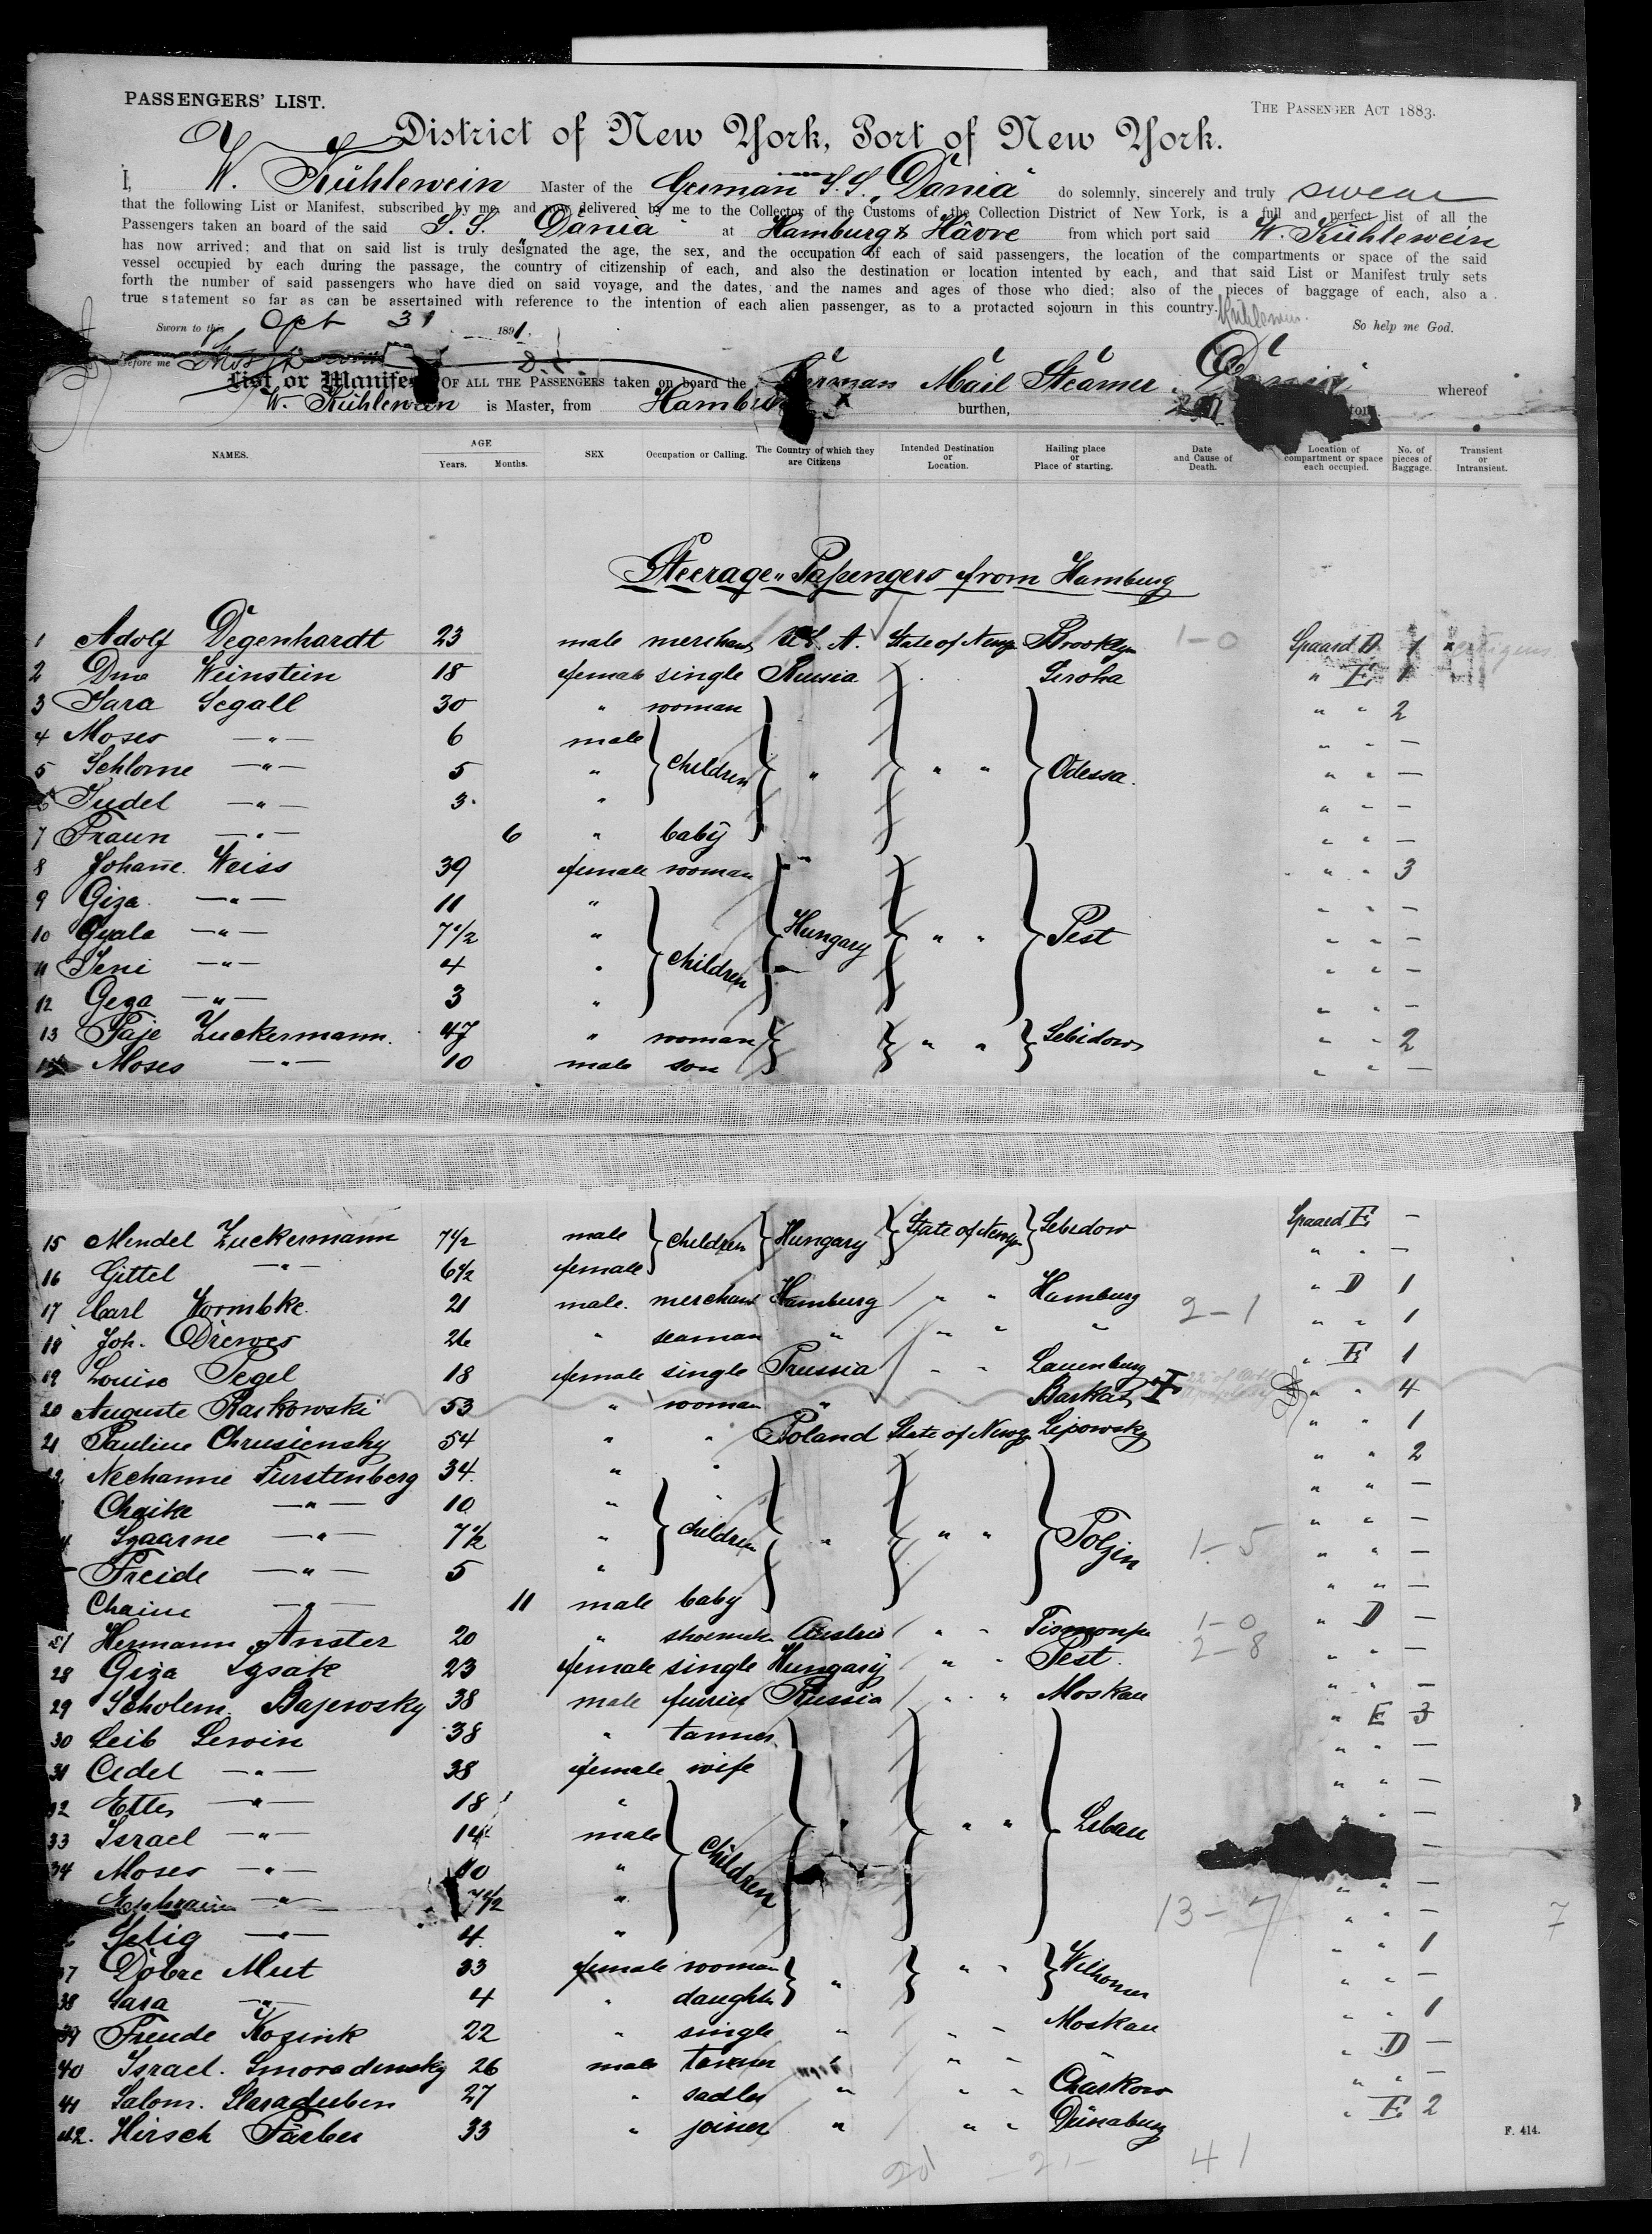 PASSENGERS' LIST.
THE PASSENGER ACT 1883.
District of New York, Port of New York.
I, W. Kühlewein Master of the German S.S. „Dania" do solemnly, sincerely and truly swear
that the following List or Manifest, subscribed by me, and now delivered by me to the Collector of the Customs of the Collection District of New York, is a full and perfect list of all the
Passengers taken an board of the said S.S. „Dania" at Hamburg & Hâvre from which port said W. Kühlewein
has now arrived; and that on said list is truly designated the age, the sex, and the occupation of each of said passengers, the location of the compartments or space of the said
vessel occupied by each during the passage, the country of citizenship of each, and also the destination or location intented by each, and that said List or Manifest truly sets
forth the number of said passengers who have died on said voyage, and the dates, and the names and ages of those who died; also of the pieces of baggage of each, also a
true statement so far as can be assertained with reference to the intention of each alien passenger, as to a protacted sojourn in this country.
Sworn to this Oct 31 1891. So help me God.
Before me
List or Manifest OF ALL THE PASSENGERS taken on board the German Mail Steamer „Dania" whereof
W. Kühlewein is Master, from Hamburg burthen, tons
NAMES. AGE Years. Months. SEX Occupation or Calling. The Country of which they are Citizens Intended Destination or Location. Hailing place or Place of starting. Date and Cause of Death. Location of compartment or space each occupied. No. of pieces of Baggage. Transient or Intransient.
Steerage-Passengers from Hamburg
1 Adolf Degenhardt 23 male merchant U.S.A. State of Newy. Brooklyn 1-0 Spaard D 1
2 Weinstein 18 female single Russia " E 1
3 Sara Segall 30 " woman " " 2
4 Moses —"— 6 male " " —
5 Schlome —"— 5 " children " " " Odessa. " " —
6 Judel —"— 3 " " " —
7 —"— 6 " baby " " —
8 Johane Weiss 39 female woman " " 3
9 Giza —"— 11 " " " —
10 Gyala —"— 7 1/2 " Hungary " " Pest " " —
11 Jeni —"— 4 " children " " —
12 Geza —"— 3 " " " —
13 Zuckermann 47 " woman " " Lebidow " " 2
14 Moses —"— 10 male son " " —
15 Mendel Zuckermann 7 1/2 male children Hungary State of Newy. Lebidow Spaard E —
16 Gittel —"— 6 1/2 female " " —
17 Carl 21 male merchant Hamburg " " Hamburg 2-1 " D 1
18 Joh. Drewes 26 " seaman " " " " " " 1
19 Louise Pegel 18 female single Prussia " " Lauenburg " E 1
20 Auguste Raskowski 53 " woman " " " 4
21 Pauline Chrusiensky 54 " " Poland State of Newy. Lipowsky " " 1
Nechanne Fürstenberg 34 " " " " 2
Chaike —"— 10 " " " —
—"— 7 1/2 " children " " " Poljin 1-5 " " —
Freide —"— 5 " " " —
Chaim —"— 11 male baby " " —
Hermann Anster 20 " Austria " " 1-0 " D —
28 Giza 23 female single Hungary " " Pest. 2-8 " " —
29 Scholem Bajewsky 38 male furrier Russia " " Moskau " " —
30 Leib Lewin 38 " tanner " E 3
31 —"— 38 female wife " " —
32 —"— 18 " " " —
33 Israel —"— 14 male " " " Libau " —
34 Moses —"— 10 " children —
Ephraim —"— 7 1/2 " " " —
Selig —"— 4 " 13-7 " " — 7
37 Dobre Mut 33 female woman " " " " " 1
38 Sara —"— 4 " daughter " " —
39 Freude Kozink 22 " single " " " Moskau " " 1
40 Israel Smoradinsky 26 male " " " " " D —
41 Salom. 27 " sadler " " " Charkow " " —
42. Hirsch Färber 33 " joiner " " " Dünaburg " E 2
F. 414.
20 -21- 41